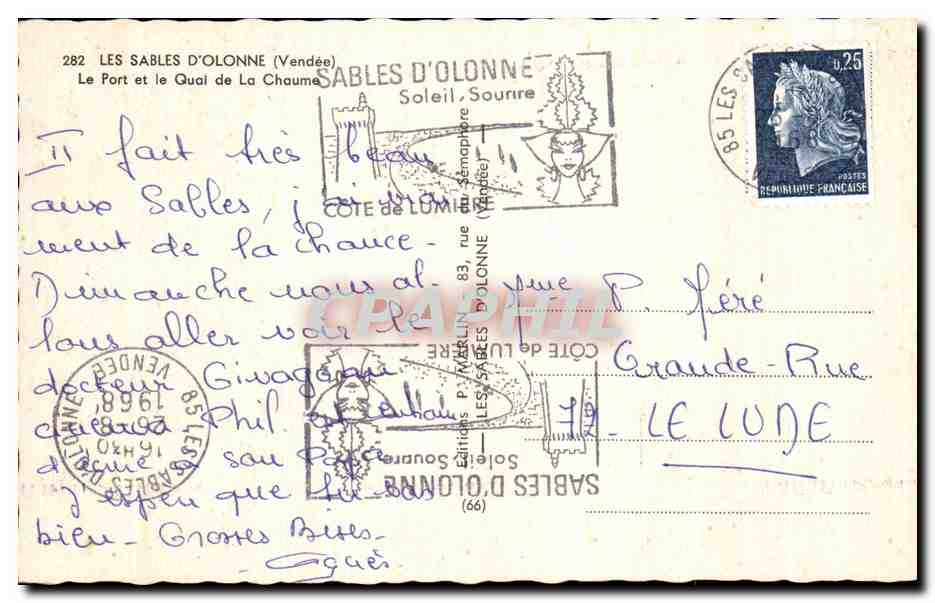 282 LES SABLES D'OLONNE (Vendée)
Le Port et le Quai de La Chaume
SABLES D'OLONNE
Soleil, Sourire
CÔTE de LUMIÈRE
85 LES SABLES
0,25
POSTES
REPUBLIQUE FRANÇAISE
Il fait très beau
aux Sables, j'ai vrai
ment de la chance -
Dimanche nous al-
lons aller voir le
docteur
Phil.
son Papa
J'espère que tu vas
bien - Grosses Bises -
Agnès
Editions P. MARLIN, 83, rue du Sémaphore
LES SABLES D'OLONNE (Vendée)
(66)
CPAPHIL
Mme P. Féré
Grande-Rue
72 - LE LUDE
SABLES D'OLONNE
Soleil, Sourire
CÔTE de LUMIÈRE
85 LES SABLES D'OLONNE
16 H30
26-8
1968
VENDEE